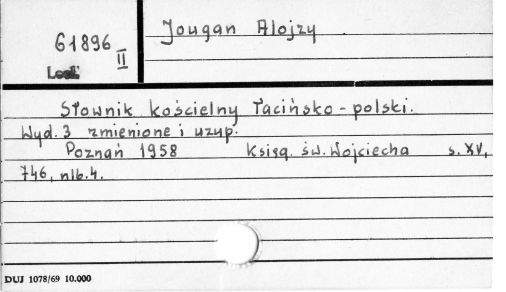 61896
II
Jougan Alojzy
Słownik kościelny łacińsko-polski.
Wyd. 3 zmienione i uzup.
Poznań 1958 Księg. św. Wojciecha s. XV,
746, nlb. 4.
DUJ 1078/69 10.000